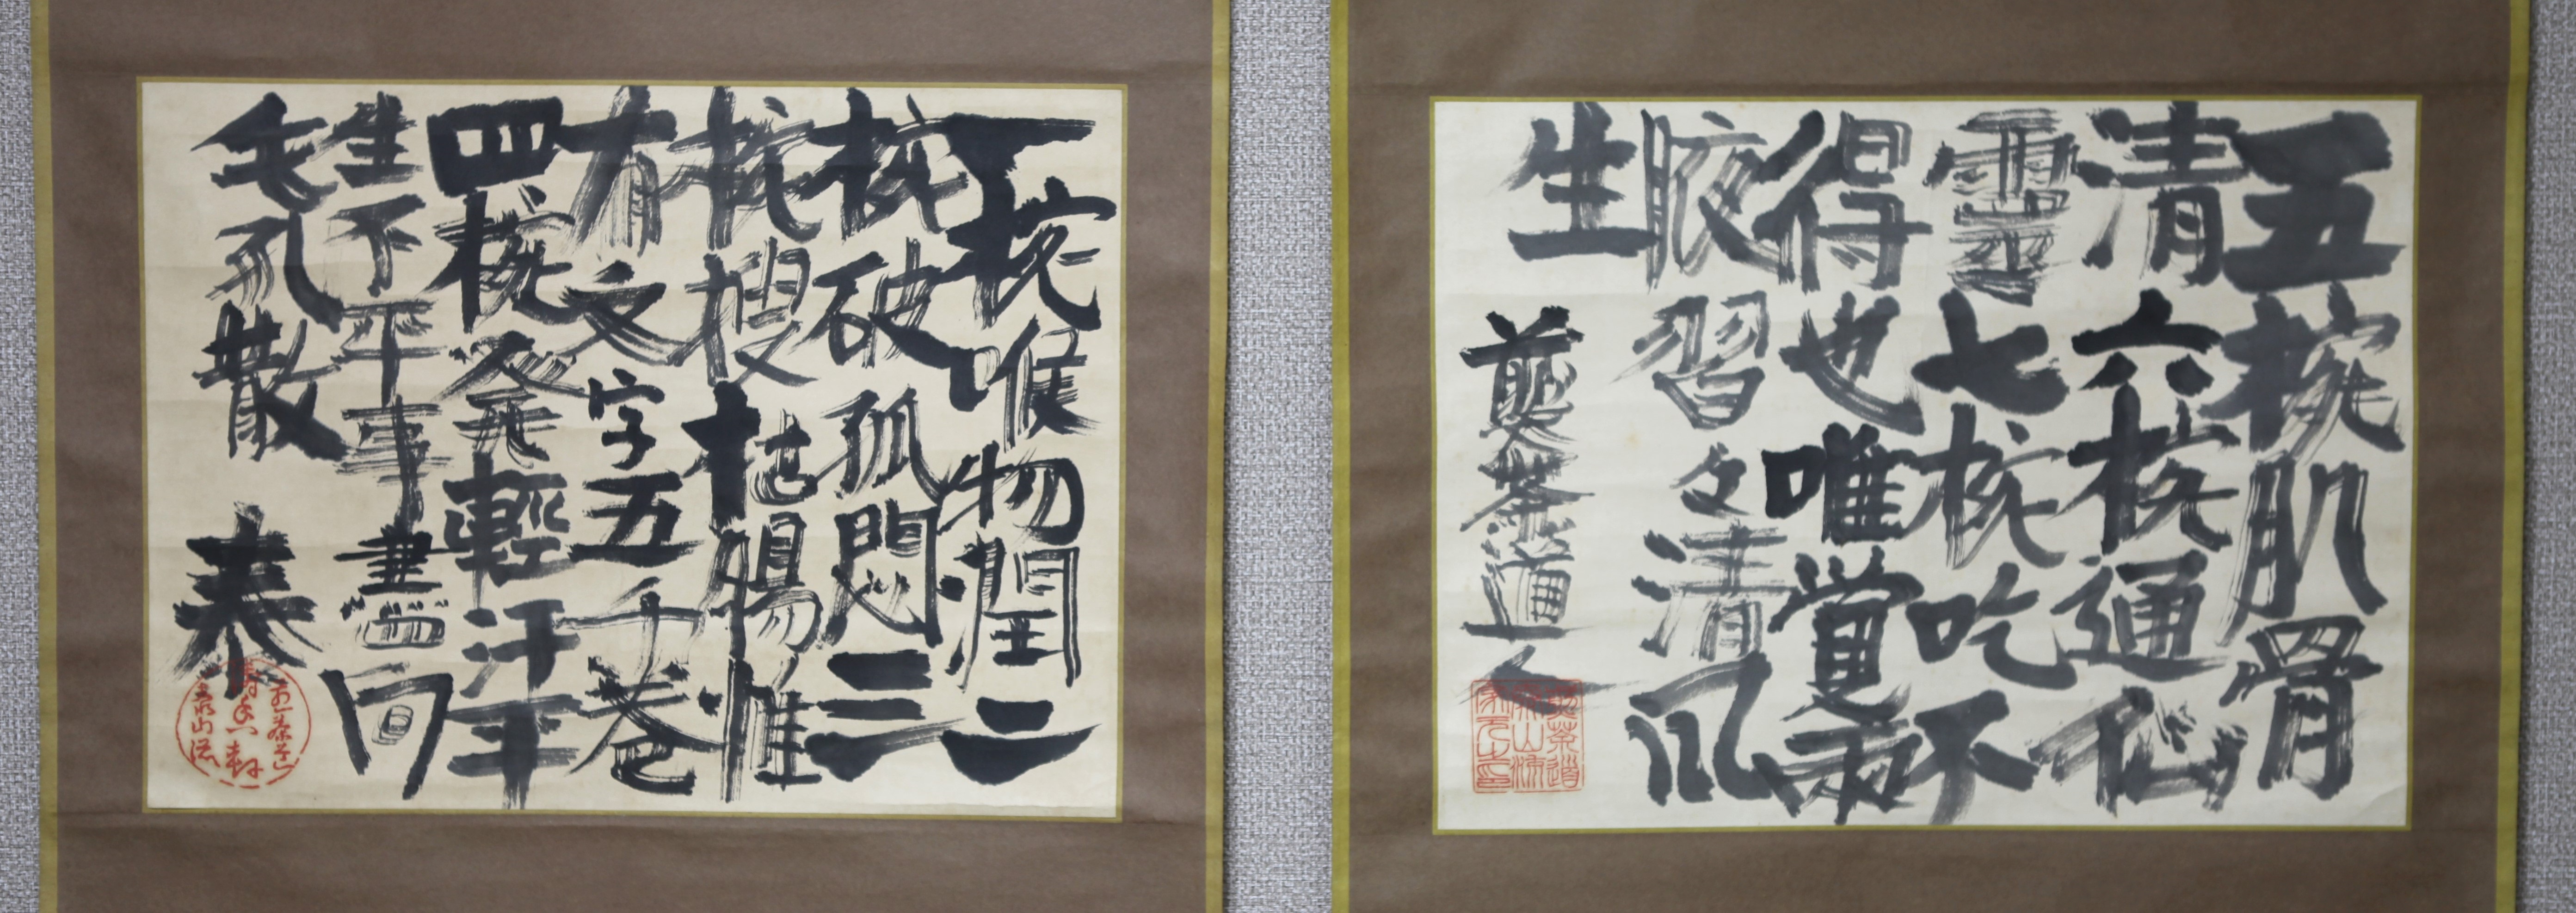 一椀喉吻潤二
椀破孤悶三
椀搜枯腸惟
有文字五千巻
四椀発輕汗平
生不平事盡向
毛孔散 泰
五椀肌骨
清六椀通仙
靈七椀吃不
得也唯覚両
腋習々清風
生
煎茶道人
煎茶道
泰山流